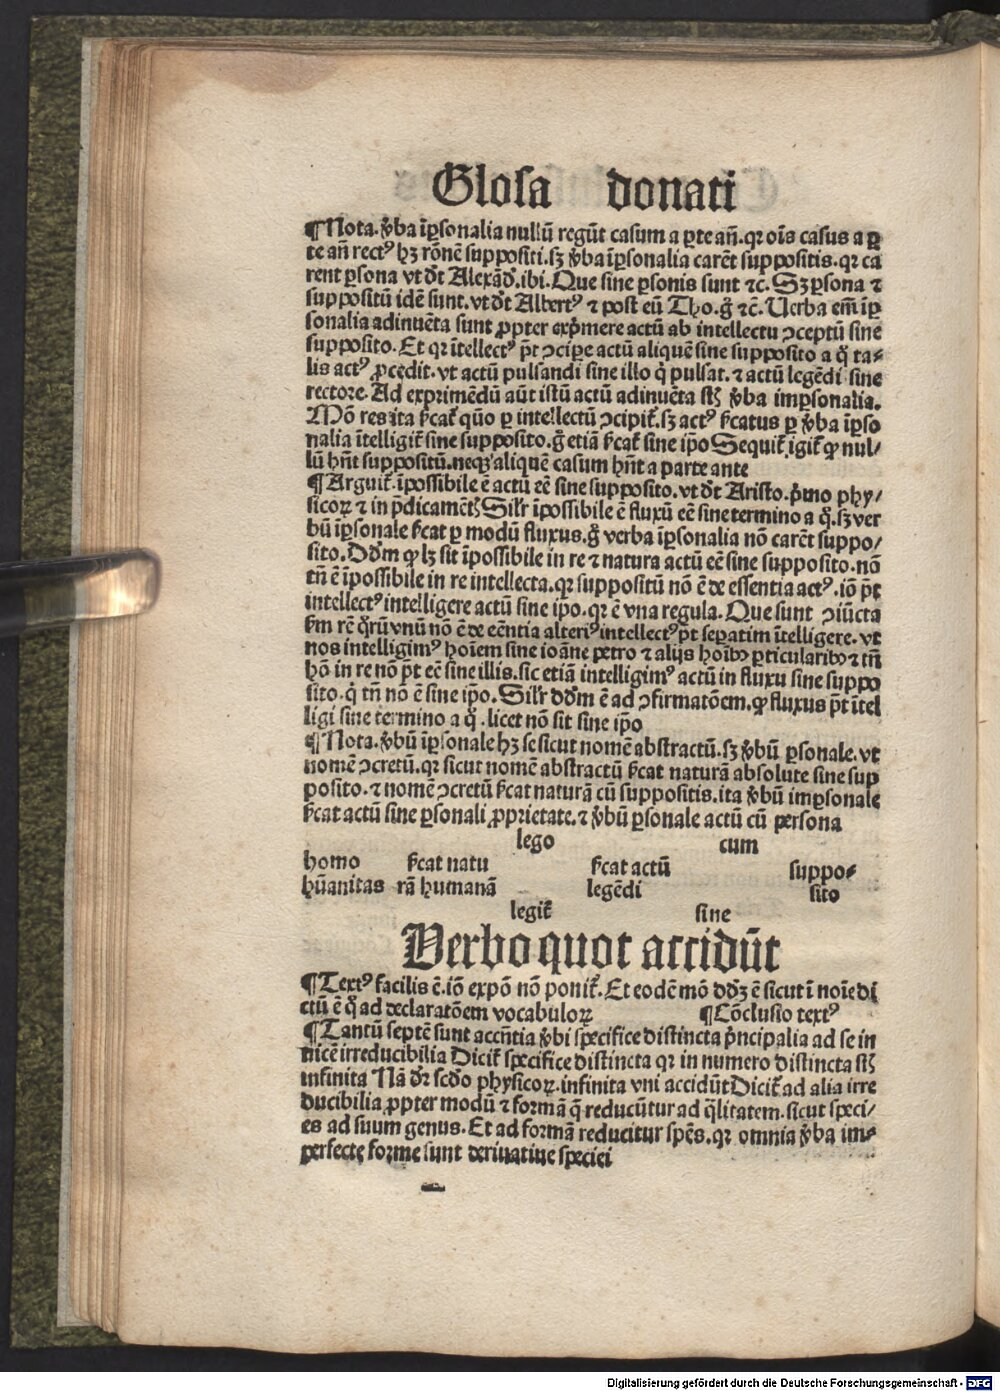 Glosa donati
¶Nota. v̄ba īp̱sonalia nullū regūt casum a p̱te añ. qꝛ oīs casus a p̱
te añ rectꝰ hꝫ rōnē suppositi. sꝫ v̄ba īp̱sonalia carēt suppositis. qꝛ ca
rent p̱sona vt dt̄ Alexād̄. ibi. Que sine p̱sonis sunt ⁊c̄. Sꝫ p̱sona ⁊
suppositū idē sunt. vt dt̄ Albertꝰ ⁊ post eū Tho. g̊ ⁊c̄. Verba em̄ īp̱
sonalia adinuēta sunt ꝓpter exp̄mere actū ab intellectu ꝯceptū sine
supposito. Et qꝛ ītellectꝰ pt̄ ꝯcip̱e actū aliquē sine supposito a q̊ ta-
lis actꝰ ꝓcedit. vt actū pulsandi sine illo q̇ pulsat. ⁊ actū legēdi sine
rectore. Ad exprimēdū aūt istū actū adinuēta st̄ v̄ba imp̱sonalia.
Mō res ita ſ̄cat̄ quō p̱ intellectū ꝯcipit̄. sꝫ actꝰ ſ̄catus p̱ v̄ba īp̱so
nalia ītelligit̄ sine supposito. g̊ etiā ſ̄cat̄ sine ip̄o Sequit̄ igit̄ ꝙ nul/
lū hn̄t suppositū. neqꝫ aliquē casum hn̄t a parte ante
¶Arguit̄. īpossibile ē actū eē sine supposito. vt dt̄ Aristo. p̄mo phy/
sicoꝝ ⁊ in p̄dicamēt̄ Silr̄ īpossibile ē fluxū eē sine termino a q̊. sꝫ ver
bū īp̱sonale ſ̄cat p̱ modū fluxus. g̊ verba īp̱sonalia nō carēt suppo/
sito. Dd̄m ꝙ lꝫ sit īpossibile in re ⁊ natura actū eē sine supposito. nō
tn̄ ē īpossibile in re intellecta. qꝛ suppositū nō ē de essentia actꝰ. iō pt̄
intellectꝰ intelligere actū sine ip̄o. qꝛ ē vna regula. Que sunt ꝯiūcta
ſm rē q̊rū vnū nō ē de eēntia alteriꝰ intellectꝰ pt̄ sep̱atim ītelligere. vt
nos intelligimꝰ hoīem sine ioāne petro ⁊ alijs hoībꝰ p̱ticularibꝰ ⁊ tn̄
hō in re nō pt̄ eē sine illis. sic etiā intelligimꝰ actū in fluxu sine suppo
sito. q̇ tn̄ nō ē sine ip̄o. Silr̄ dd̄m ē ad ꝯfirmatōem. ꝙ fluxus pt̄ ītel
ligi sine termino a q̊. licet nō sit sine ip̄o
¶Nota. v̄bū īp̱sonale hꝫ se sicut nomē abstractū. sꝫ v̄bū p̱sonale. vt
nomē ꝯcretū. qꝛ sicut nomē abstractū ſ̄cat naturā absolute sine sup
posito. ⁊ nomē ꝯcretū ſ̄cat naturā cū suppositis. ita v̄bū imp̱sonale
ſ̄cat actū sine p̱sonali ꝓprietate. ⁊ v̄bū p̱sonale actū cū persona
lego cum
homo ſ̄cat natu ſ̄cat actū suppo-
hūanitas rā humanā legēdi sito
legit̄ sine
Verbo quot accidūt
¶Textꝰ facilis ē. iō expō nō ponit̄. Et eodē mō dd̄ꝫ ē sicut ī noīe di
ctū ē q̊ ad declaratōem vocabuloꝝ ¶Cōclusio textꝰ
¶Tantū septē sunt accn̄tia v̄bi specifice distincta p̄ncipalia ad se in
uicē irreducibilia Dicit̄ specifice distincta qꝛ in numero distincta st̄
infinita Nā dr̄ scd̄o physicoꝝ. infinita vni accidūt Dicit̄ ad alia irre
ducibilia ꝓpter modū ⁊ formā q̄ reducūtur ad q̄litatem. sicut speci/
es ad suum genus. Et ad formā reducitur spēs. qꝛ omnia v̄ba im-
perfecte forme sunt deriuatiue speciei
Digitalisierung gefördert durch die Deutsche Forschungsgemeinschaft - DFG